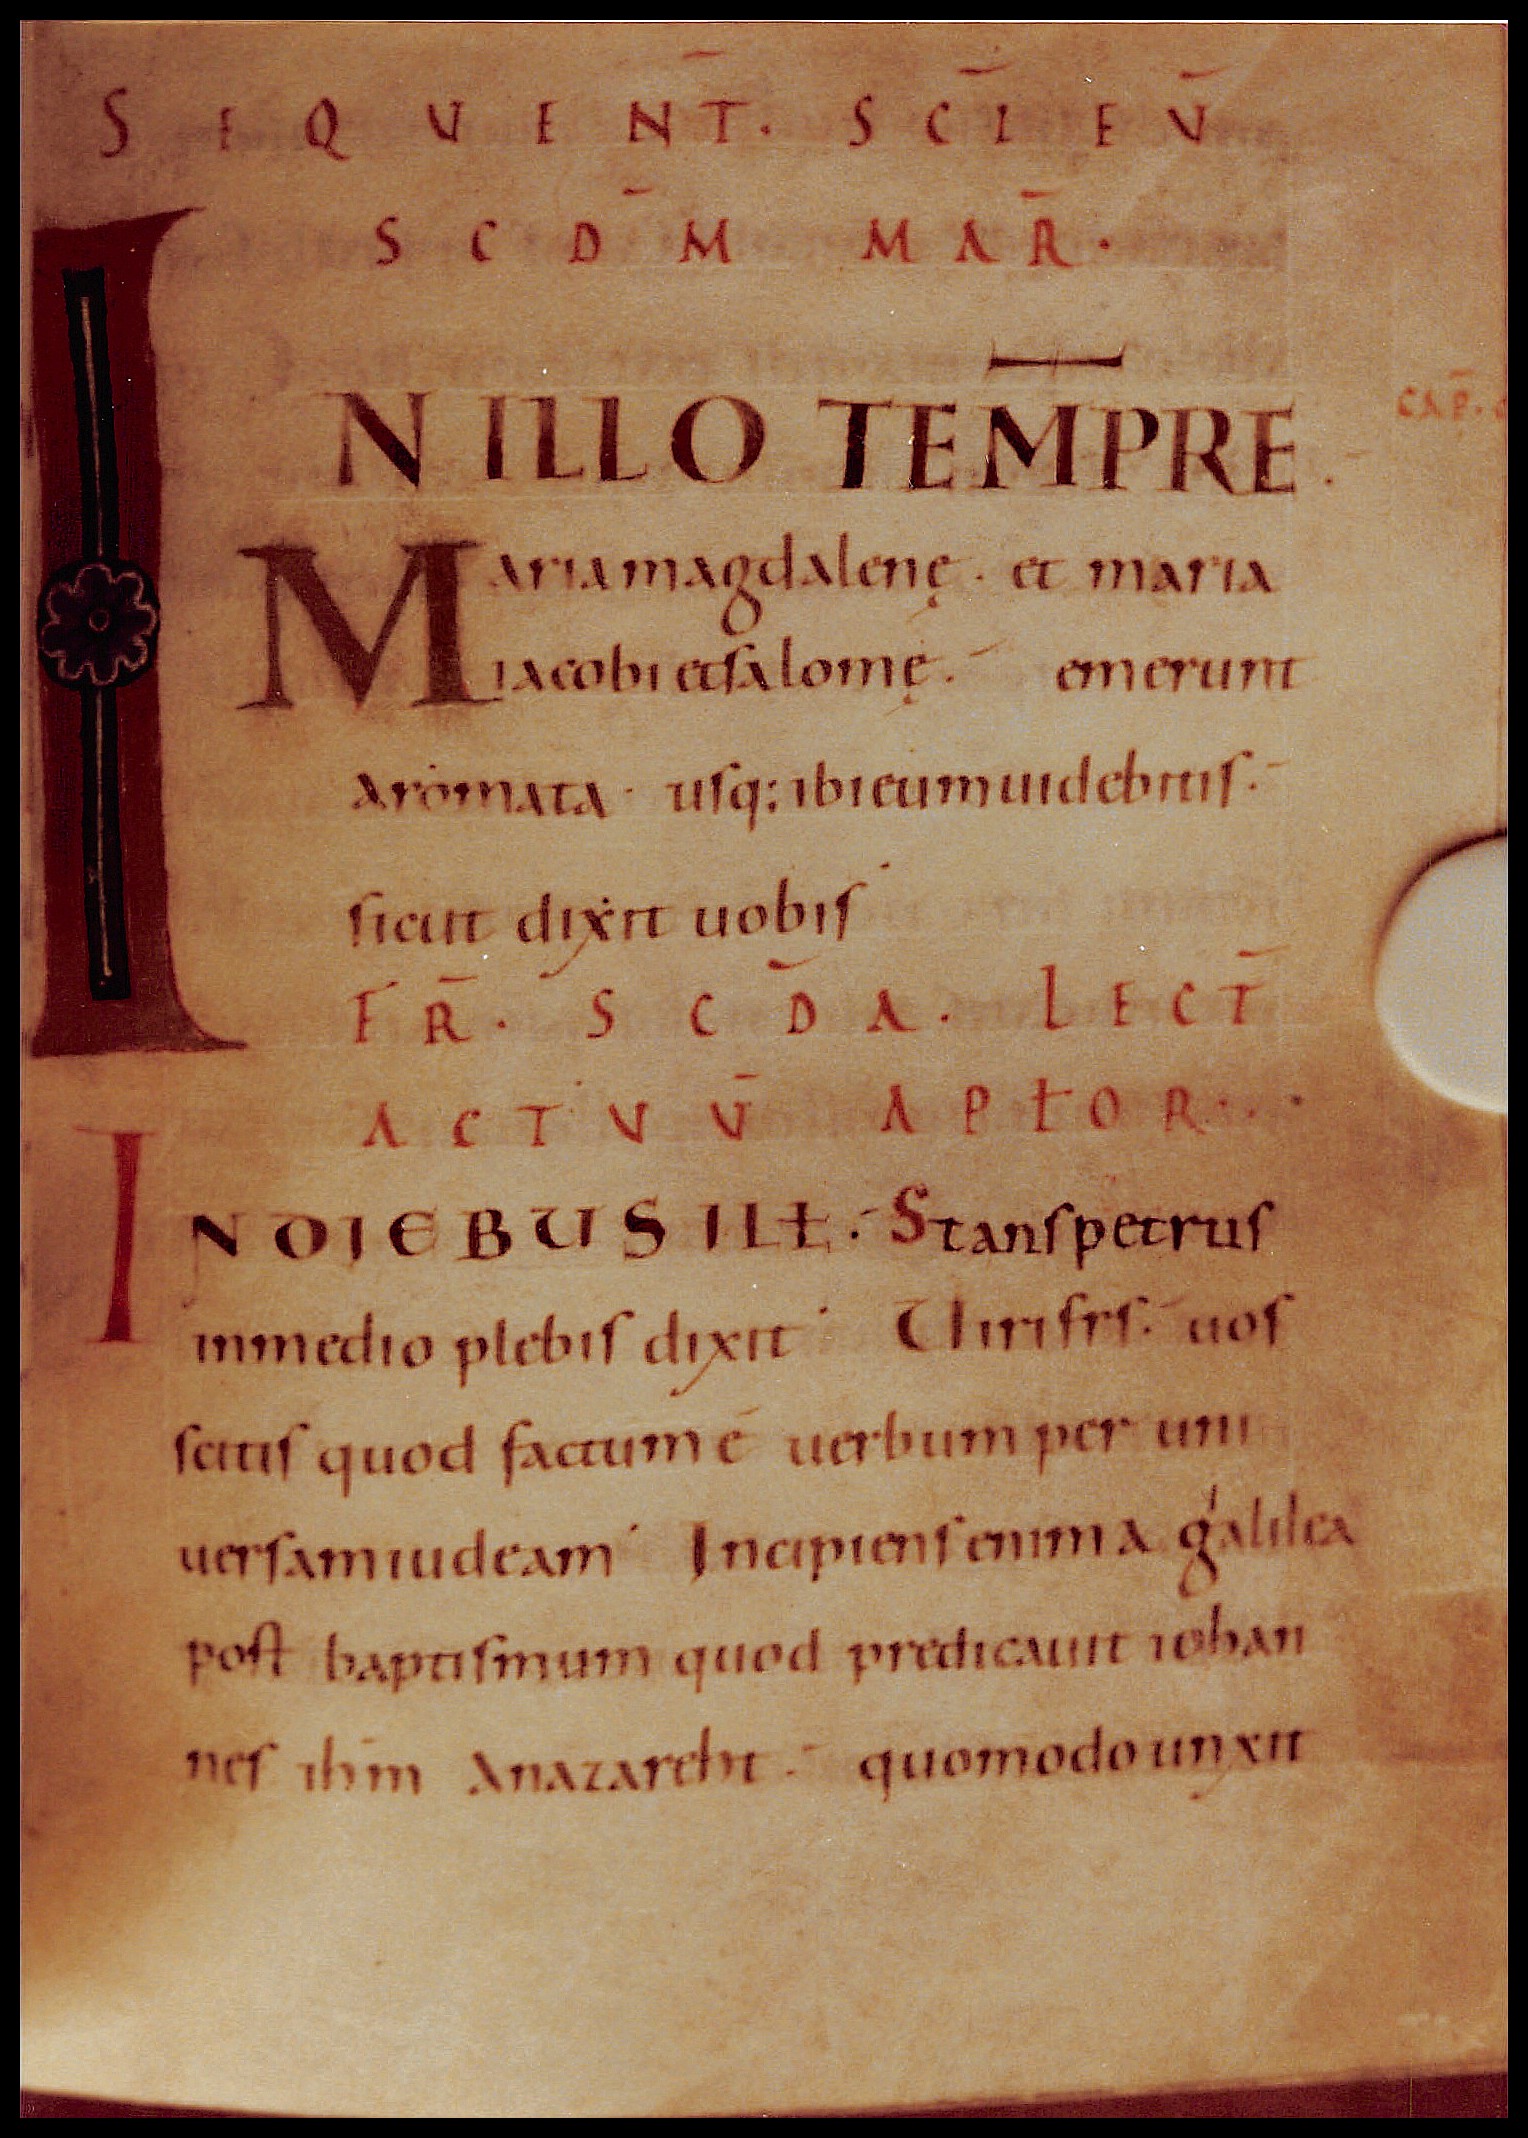 SEQUENT̄. SC̄I EV̄
SCD̄M MAR̄.
CAP̄.
IN ILLO TEM̄PRE.
Maria magdalenę. et maria
iacobi et salomę. emerunt
aromata. usq; ibi eum uidebitis.
sicut dixit uobis
FR̄. SCD̄A. LECT̄
ACTUŪ APŁOR.
IN DIEBUS ILŁ. Stans petrus
inmedio plebis dixit Uiri frs. uos
scitis quod factum ē uerbum per uni
uersam iudeam Incipiens enim a galilea
post baptismum quod predicauit iohan
nes ih̄m Anazareht. quomodo unxit